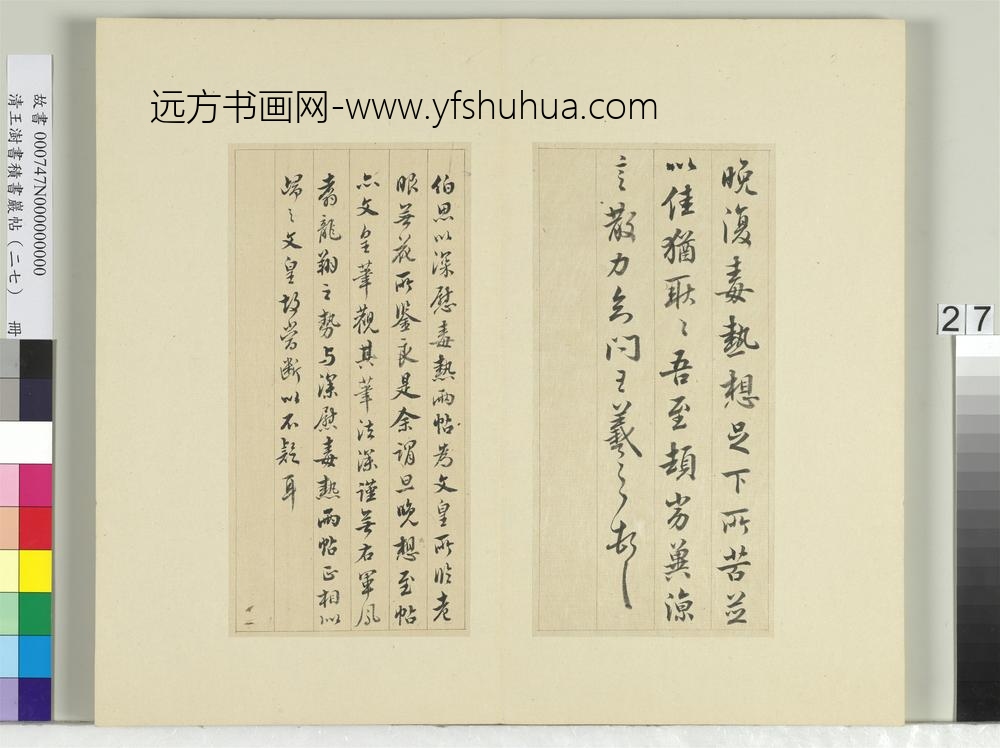 远方书画网-www.yfshuhua.com
故書 000747N000000000
清王澍書積書巖帖（二七） 冊
27
晚復毒熱想足下所苦並
以佳猶耿〻吾至頓劣冀涼
言散力知問王羲之頓首
伯思以深慰毒熱兩帖為文皇所臨老
眼無花所鑒良是余謂旦晚想至帖
亦文皇筆觀其筆法深謹無右軍鳳
翥龍翔之勢与深慰毒熱兩帖正相似
歸之文皇故當斷以不疑耳